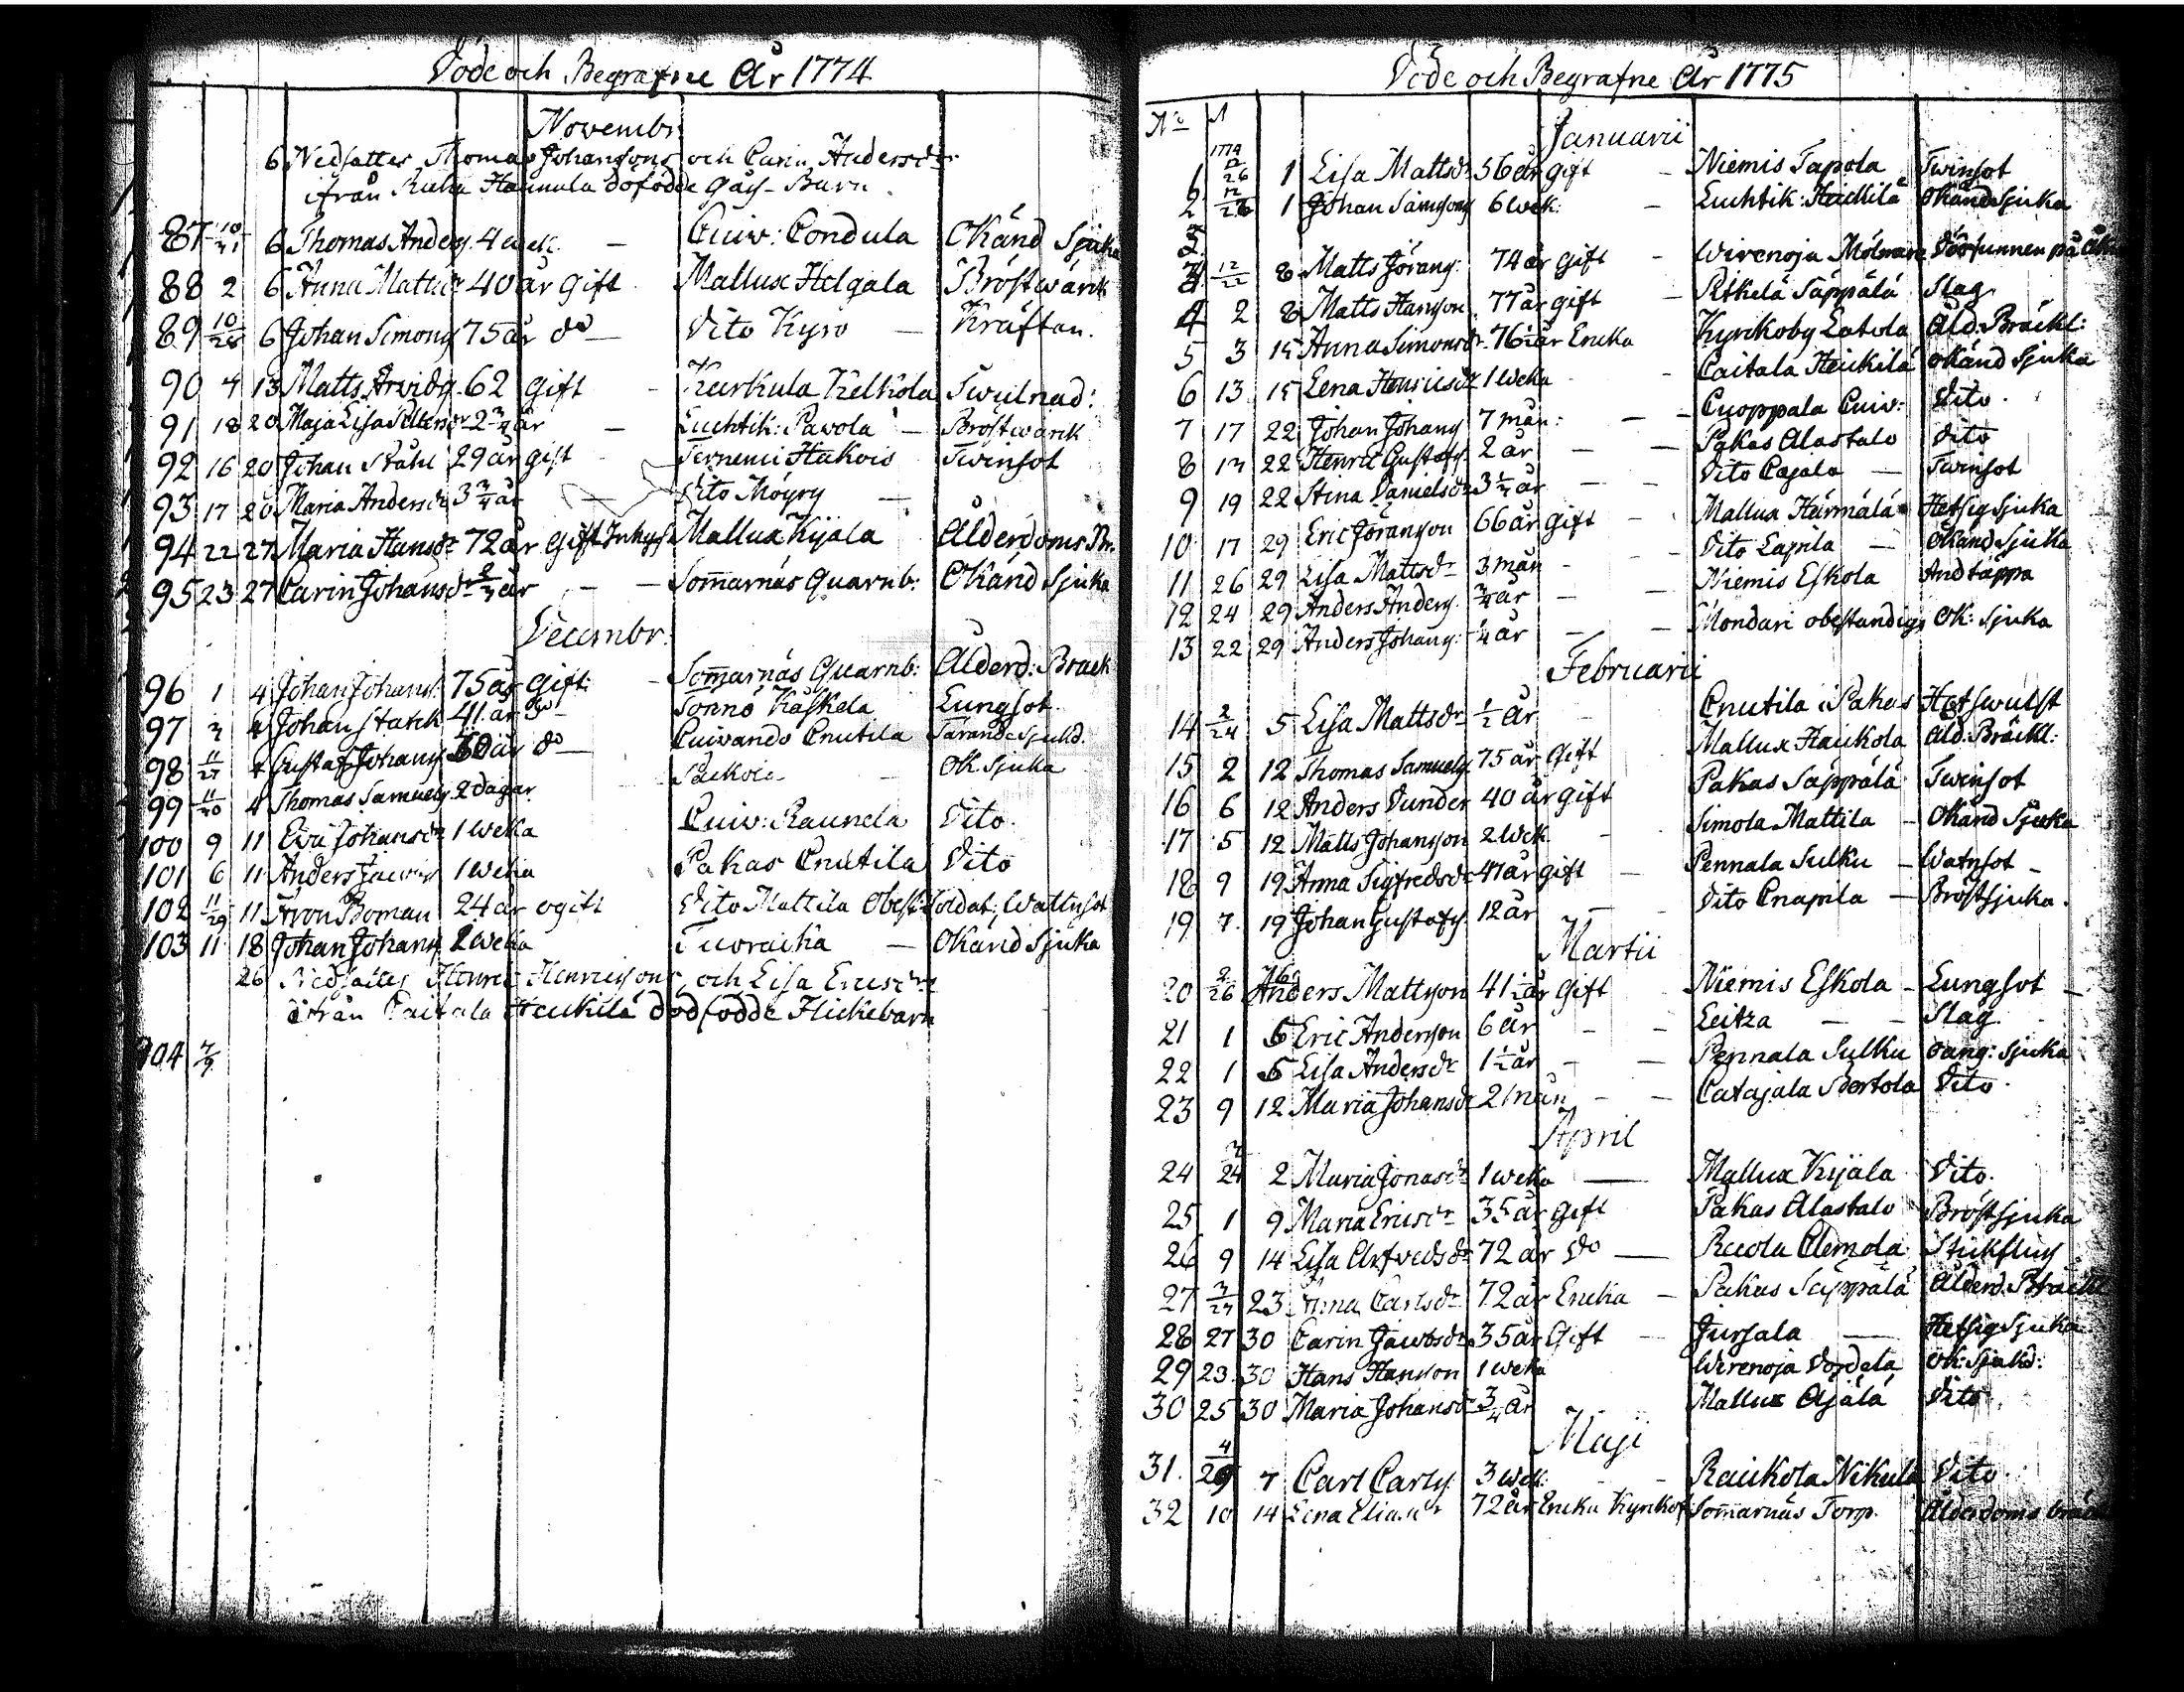 Döde och Begrafne År 1774
Novembr
6 Nedsattes Thomas Johansons och Carin Andersdr
ifrån Hannula döfödde Gåsse-Barn
87 10/31 6 Thomas Anders. 4 wek. — Cuiv: Condula Okänd Sjuka
88 2 6 Anna Mattsdr 40 år Gift Mallux Helgala Bröstwärk
89 10/28 6 Johan Simons 75 år do — Dito Kyro — Kräftan.
90 4 13 Matts Arvids. 62 Gift - Karkula Kelkola Swulnad:
91 18 20 Maja Lisa 2 3/4 år — Luchtik: Pavola — Bröstwärk
92 16 20 Johan Ståhl 29 år gift Hakois Twinsot
93 17 20 Maria Andersdr 3 3/4 år — Dito Möyry —
94 22 27 Maria Hansdr 72 år Gift Mallux Kyala Ålderdoms Br.
95 23 27 Carin Johansdr 2/4 år - — Somarnäs Quarnb: Okänd Sjuka
Decembr:
96 1 4 Johan Johans: 75 år Gift - Somarnäs Quarnb: Ålderd: Bräck
97 3 4 Johan Starck 41 år do - Tönnö Käskela Lungsot.
98 11/27 4 Gustaf Johans 50 år do — Cuivando Cnutila Tärande Sjukd.
99 11/30 4 Thomas Samuels. 2 dagar Ok. Sjuka
100 9 11 Eva Johansdr 1 weka Cuiv: Raunela Dito.
101 6 11 Anders 1 weka Pakas Cnutila Dito
102 11/29 11 Boman 24 år ogift Dito Mattila Obest: Soldat; Wattusot
103 11 18 Johan Johans 2 weka Tuoraika — Okänd Sjuka
26 Nedsattes Henric Henricsons och Lisa Ericsdrs
ifrån Caitala Heickilä dödfödde Flickebarn
104 7/9
Döde och Begrafne År 1775
No 1
Januarii
1774
1 12/26 1 Lisa Mattsdr 56 år gift - Niemis Tapola Twinsot
2 12/26 1 Johan Samsons 6 wek: — Luchtik: Heickilä Okänd Sjuka
3 12/22 8 Matts Jörans: 74 år gift - Wirenoja Mölnare
4 2 8 Matts Hanson. 77 år gift — Pitkelä Säppälä Slag
5 3 15 Anna Simonsdr. 76 1/2 år Encka Kyrckoby Latola Åld. Bräckl:
6 13 15 Lena Henricsdr 1 weka - Caitala Heickilä Okänd Sjuka
7 17 22 Johan Johans 7 mån: — Cuoppala Cuiv: Dito.
8 17 22 Henric Gustafs. 2 år — — Pakas Alastalo Dito
9 19 22 Stina Danielsdr 3 1/4 år — — Dito Cajala — Twinsot
10 17 29 Eric Jöranson 66 år gift - Mallux Härmälä Hetsig Sjuka
11 26 29 Lisa Mattsdr 3 mån - — Dito Laprila — Okänd Sjuka
12 24 29 Anders Anders. 3/4 år — — Niemis Eskola Andtäppa
13 22 29 Anders Johans: 1/4 år — — Mondari obestandigs Ok: Sjuka
Februarii
14 2/24 5 Lisa Mattsdr 1/2 år Cnutila i Pakas Hetswulst
15 2 12 Thomas Samuels. 75 år Gift Mallux Haukola Åld: Bräckl:
16 6 12 Anders Dunder 40 år gift Pakas Säppälä Twinsot
17 5 12 Matts Johanson 2 wek - Simola Mattila - Okänd Sjuka
18 9 19 Anna Sigfredsdr 47 år gift — Pennala Sulku — Watnsot —
19 7 19 Johan Gustafs. 12 år — Dito Cnapila — Bröstsjuka.
Martii
20 2/26 Anders Mattson 41 1/2 år Gift Niemis Eskola - Lungsot —
21 1 5 Eric Anderson 6 år - — Leitza — — Slag -
22 1 5 Lisa Andersdr 1 1/2 år - — Pennala Sulku Sjuka
23 9 12 Maria Johansdr 2 mån — — Catajala Bertola Dito.
April
24 3/24 2 Maria Jonasdr 1 weka — Mallux Kyala Dito.
25 1 9 Maria Ericsdr 35 år gift Pakas Alastalo Bröstsjuka
26 9 14 Lisa Arfvedsdr 72 år do — Recola Clemola Stickfluss
27 3/27 23 Anna Carlsdr 72 år Encka — Pakas Säppälä Ålderd. Bräckl
28 27 30 Carin Jacobsdr. 35 år Gift — Jursala — Hetsig Sjuka
29 23 30 Hans Hanson 1 weka Wirenoja Dordela Ok: Sjukd:
30 25 30 Maria Johansdr 3/4 år Mallux Ajälä Dito
Maji
31. 4/29 7 Carl Carls. 3 wek: - — Raukola Nikula Dito.
32 10 14 Lena Eliaedr 72 år Encka Somarnäs Torp. Ålderdoms bräck